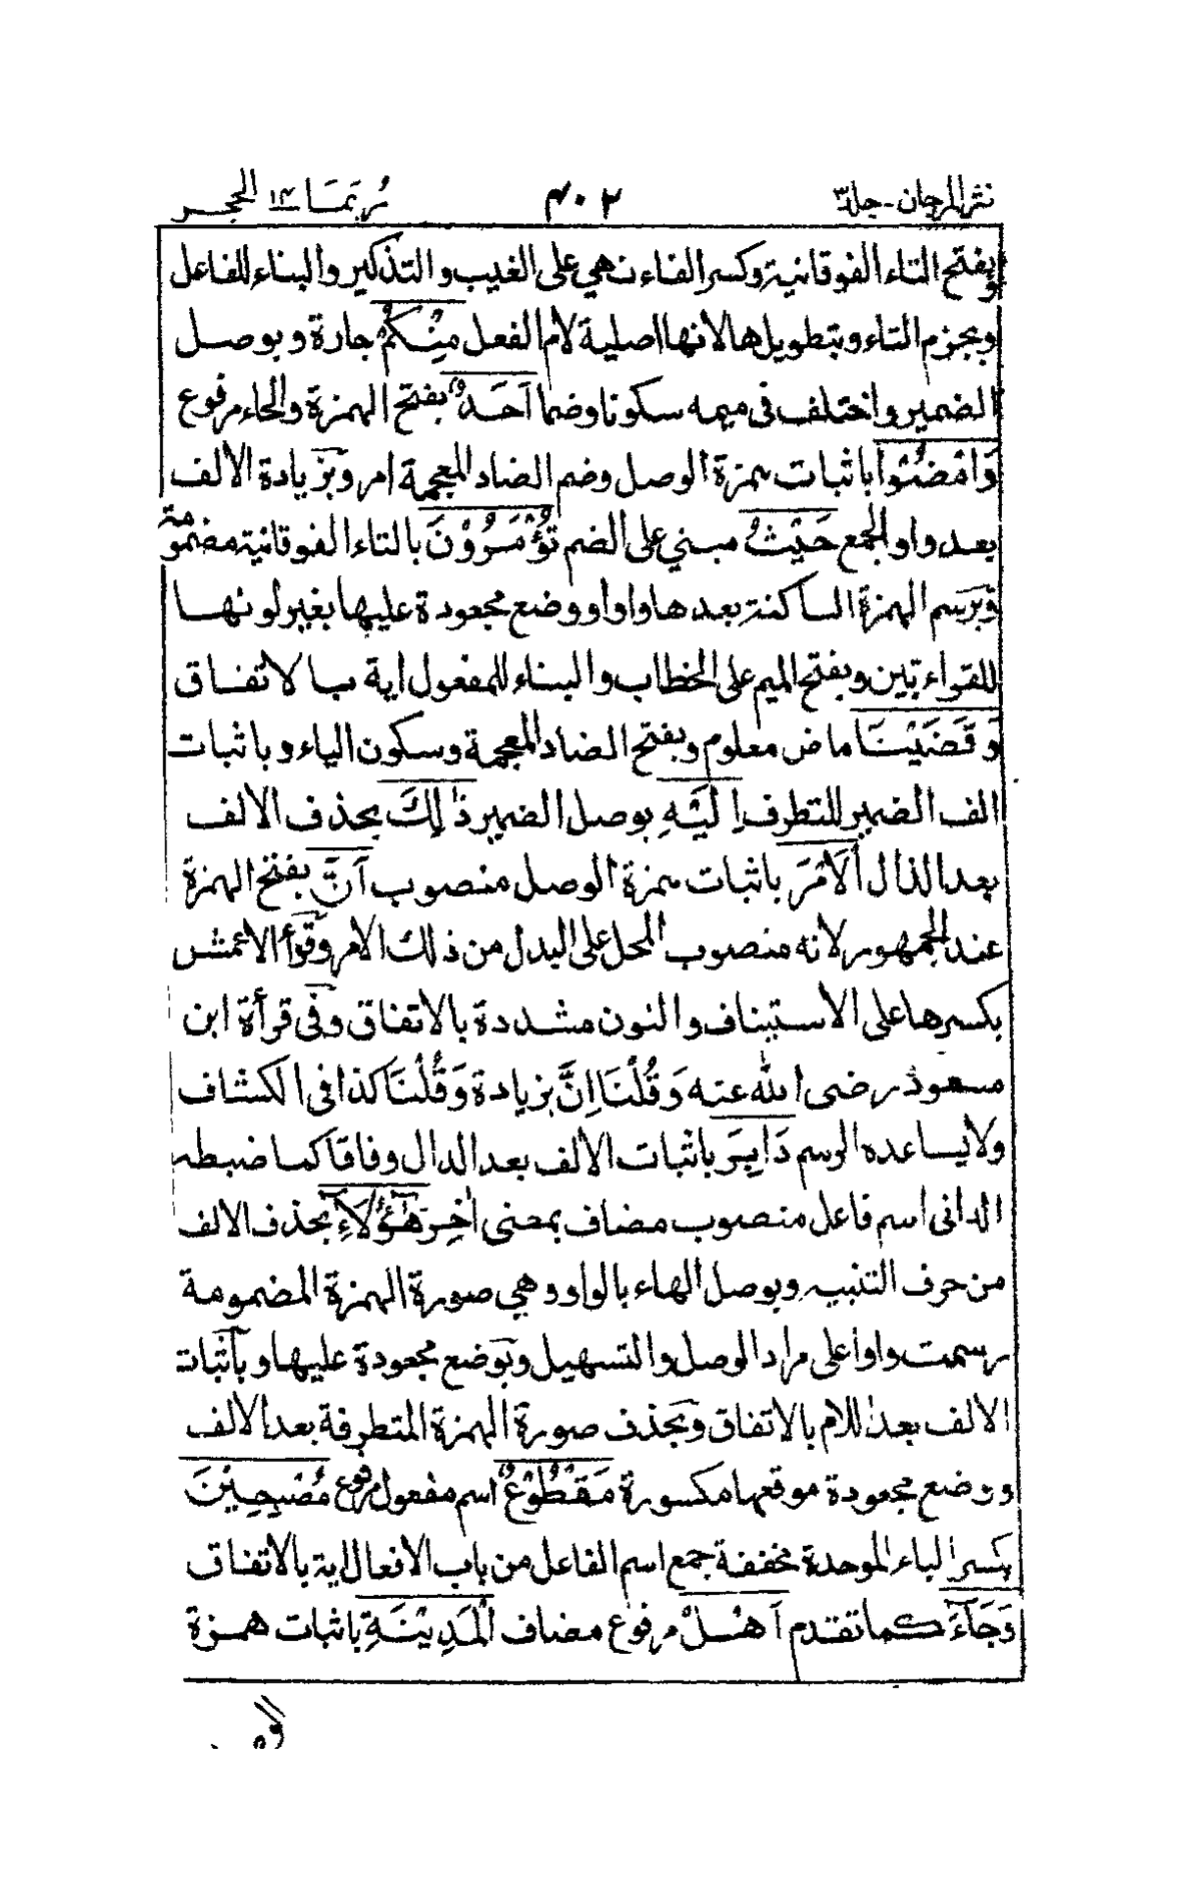 نثر المرجان - جلد ٣ ٤٠٢ رُبَمَا ١٤ الحجر
وبفتح التاء الفوقانية وكسر الفاء نهي على الغيب والتذكير والبناء للفاعل
وبجزم التاء وبتطويلها لانها اصلية لام الفعل مِنْكُمْ جارة وبوصل
الضمير واختلف فى ميمه سكونا وضما اَحَدٌ بفتح الهمزة والحاء مرفوع
وَامْضُوْا باثبات همزة الوصل وضم الضاد المعجمة امر وبزيادة الالف
بعد واو الجمع حَيْثُ مبني على الضم تُؤْمَرُوْنَ بالتاء الفوقانية مضمومة
وبرسم الهمزة الساكنة بعدها واوا ووضع مجعودة عليها بغير لونها
للقراءتين وبفتح الميم على الخطاب والبناء للمفعول اية بالاتفاق
وَقَضَيْنَا ماض معلوم وبفتح الضاد المعجمة وسكون الياء وباثبات
الف الضمير للتطرف اِلَيْهِ بوصل الضمير ذٰلِكَ بحذف الالف
بعد الذال الْاَمْرَ باثبات همزة الوصل منصوب اَنَّ بفتح الهمزة
عند الجمهور لانه منصوب المحل على البدل من ذلك الامر وقرأ الاعمش
بكسرها على الاستيناف والنون مشددة بالاتفاق وفى قرأة ابن
مسعود رضى الله عنه وَقُلْنَا اِنَّ بزيادة وَقُلْنَا كذا فى الكشاف
ولا يساعده الرسم دَابِرَ باثبات الالف بعد الدال وفاقا كما ضبطه
الدانى اسم فاعل منصوب مضاف بمعنى اٰخِرَ هٰٓؤُلَآءِ بحذف الالف
من حرف التنبيه وبوصل الهاء بالواو وهي صورة الهمزة المضمومة
رسمت واوا على مراد الوصل والتسهيل وبوضع مجعودة عليها وباثبات
الالف بعد اللام بالاتفاق وبحذف صورة الهمزة المتطرفة بعد الالف
ووضع مجعودة موقعها مكسورة مَقْطُوْعٌ اسم مفعول مرفوع مُصْبِحِيْنَ
بكسر الباء الموحدة مخففة جمع اسم الفاعل من باب الافعال اية بالاتفاق
وَجَآءَ كما تقدم اَهْلُ مرفوع مضاف الْمَدِيْنَةِ باثبات همزة